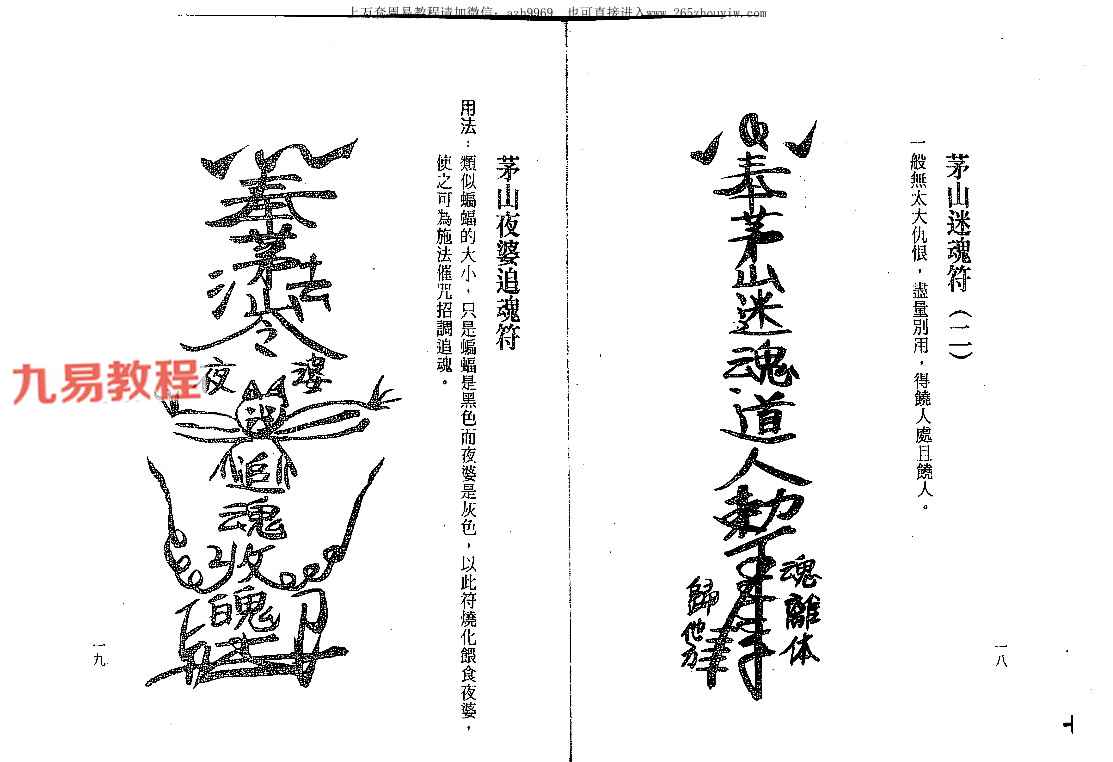 上万套周易教程请加微信：azh9969，也可直接进入www.265zhouyiw.com
茅山迷魂符（二）
一般無太大仇恨，盡量別用，得饒人處且饒人。
奉茅山迷魂道人勅令
魂離体
歸他力
一八
茅山夜婆追魂符
用法：類似蝙蝠的大小，只是蝙蝠是黑色而夜婆是灰色，以此符燒化餵食夜婆，
使之可為施法催咒招調追魂。
奉
茅山
法
令
夜婆
追
魂
收
魄
一九
九易教程